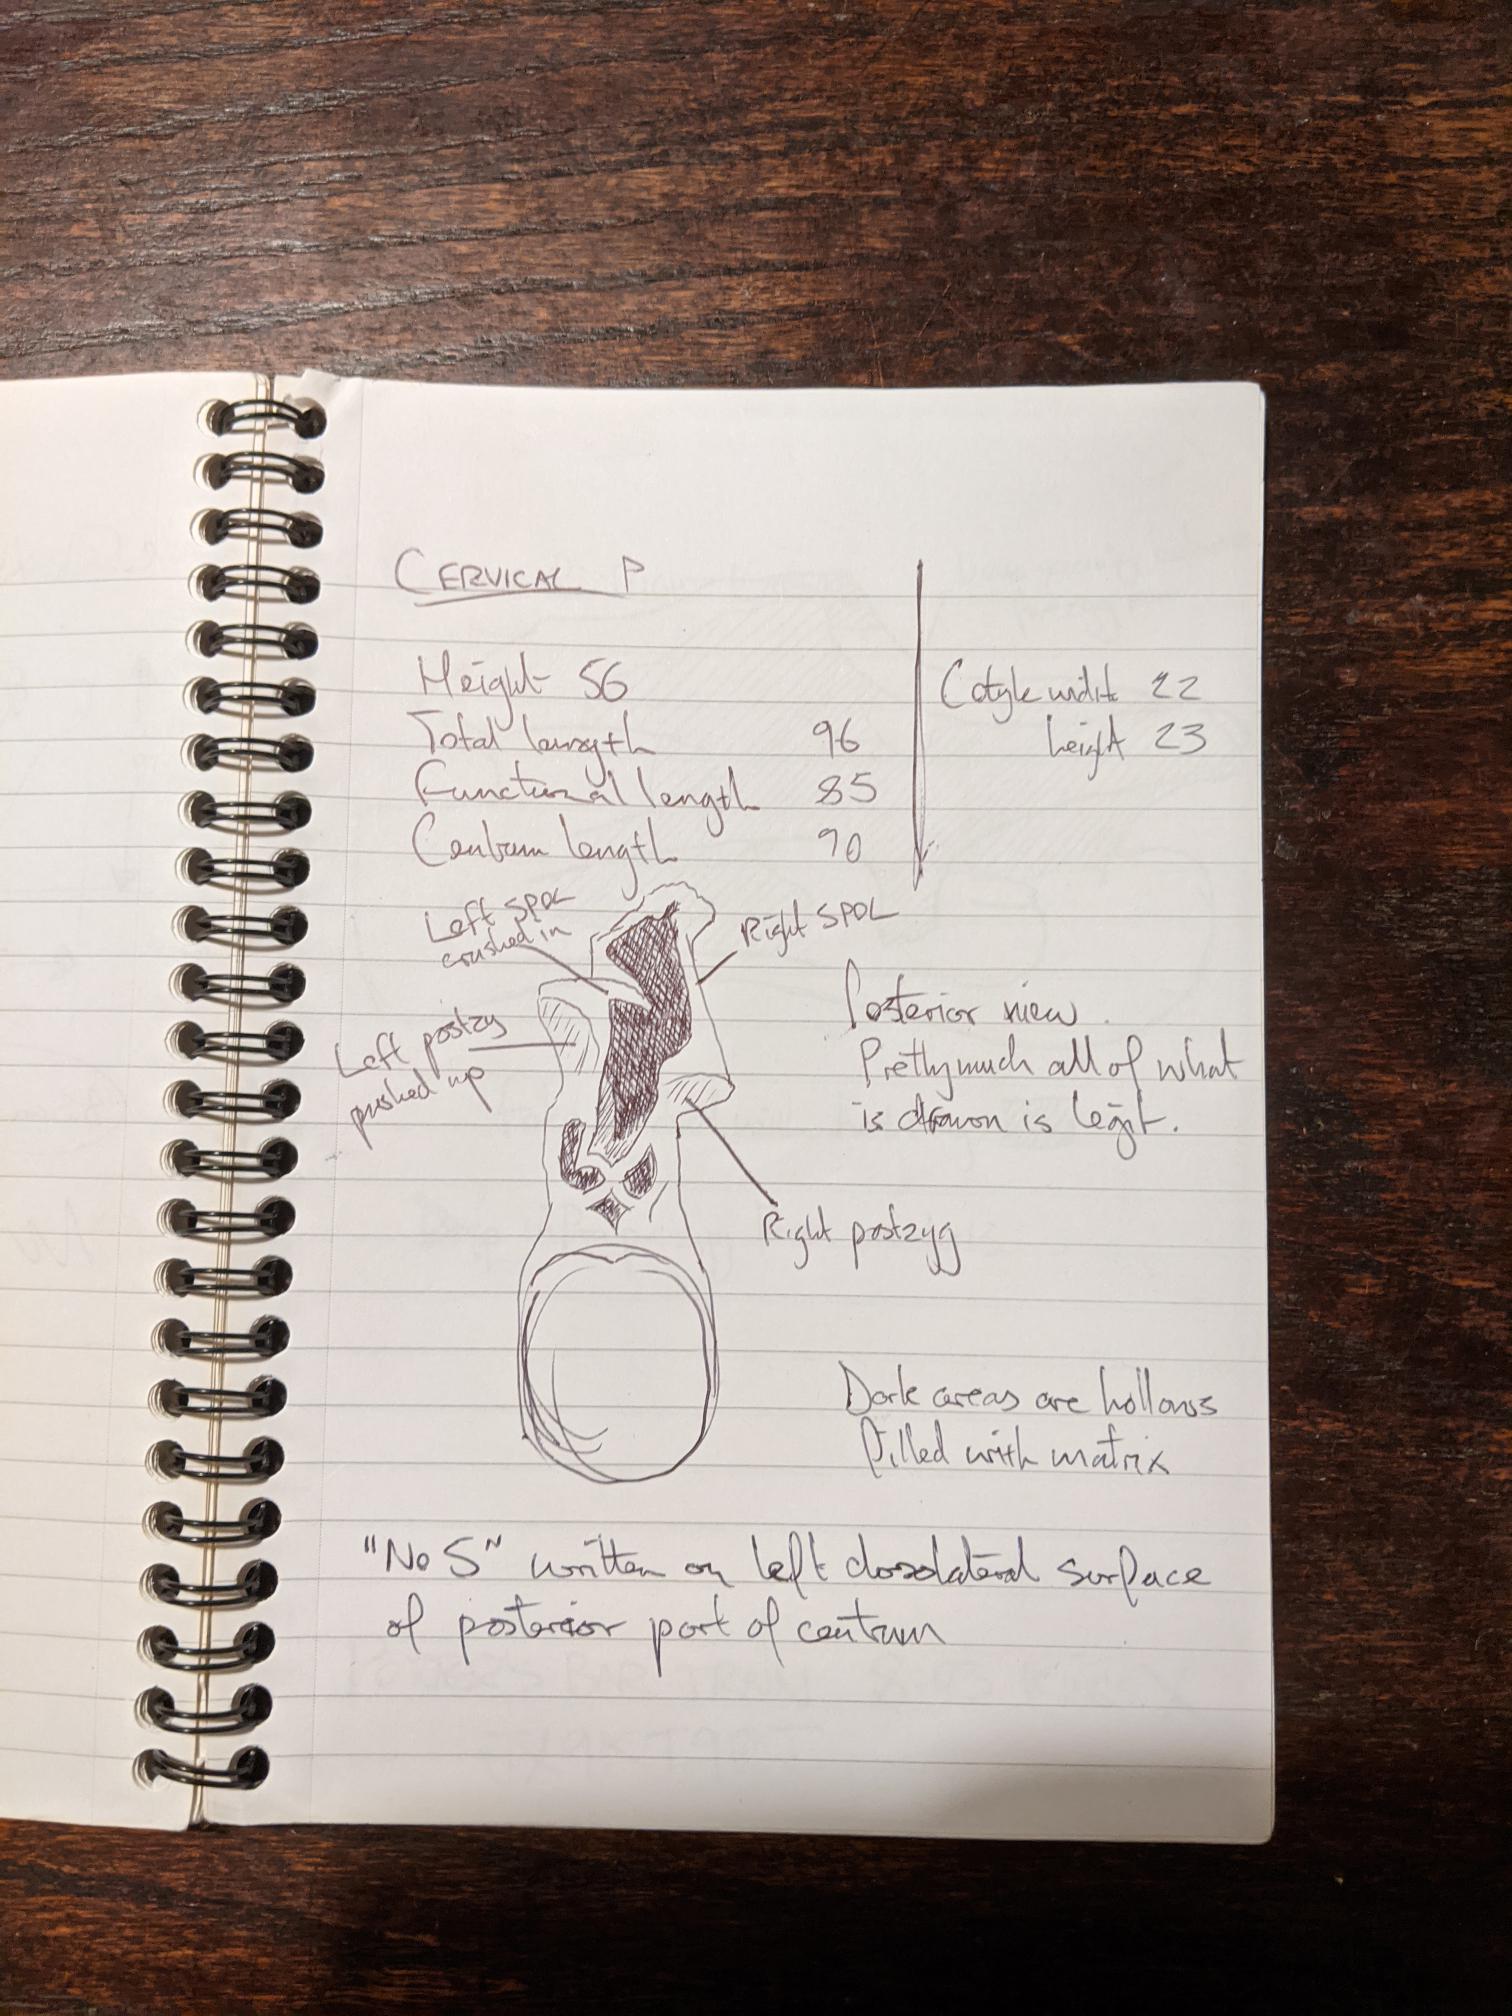 CERVICAL P
Height 56
Total length 96
Functional length 85
Centrum length 90
Cotyle width 22
height 23
Left SPOL
crushed in
Right SPOL
Left postzyg
pushed up
Posterior view.
Pretty much all of what
is drawn is legit.
Right postzyg
Dark areas are hollows
filled with matrix
"No 5" written on left dorsolateral surface
of posterior part of centrum